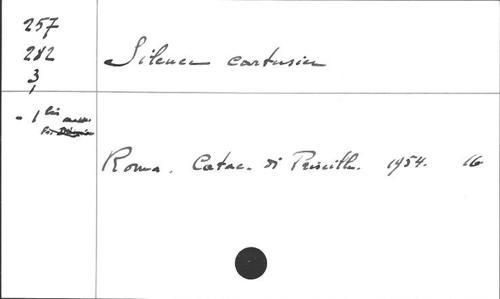 257
282
3
Silence cartusien
- 1 bis
Roma. Catac. di Priscilla. 1954. 16